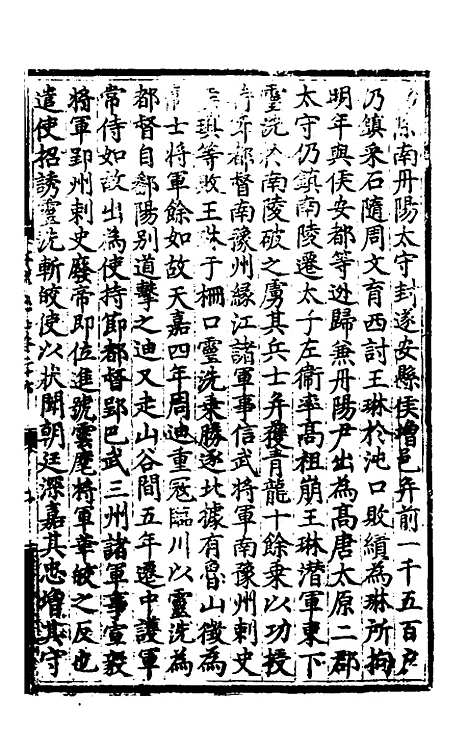 除南丹陽太守封遂安縣侯增邑并前一千五百戶
仍鎮采石隨周文育西討王琳於沌口敗績為琳所拘
明年與侯安都等逃歸兼丹陽尹出為高唐太原二郡
太守仍鎮南陵遷太子左衛率高祖崩王琳潛軍東下
靈洗於南陵破之虜其兵士并獲青龍十餘乘以功授
持節都督南豫州緣江諸軍事信武將軍南豫州刺史
瑱等敗王琳于柵口靈洗乘勝逐北據有魯山徵為
衛士將軍餘如故天嘉四年周迪重寇臨川以靈洗為
都督自鄱陽別道擊之迪又走山谷間五年遷中護軍
常侍如故出為使持節都督郢巴武三州諸軍事宣毅
將軍郢州刺史廢帝即位進號雲麾將軍華皎之反也
遣使招誘靈洗斬皎使以狀聞朝廷深嘉其忠增其守